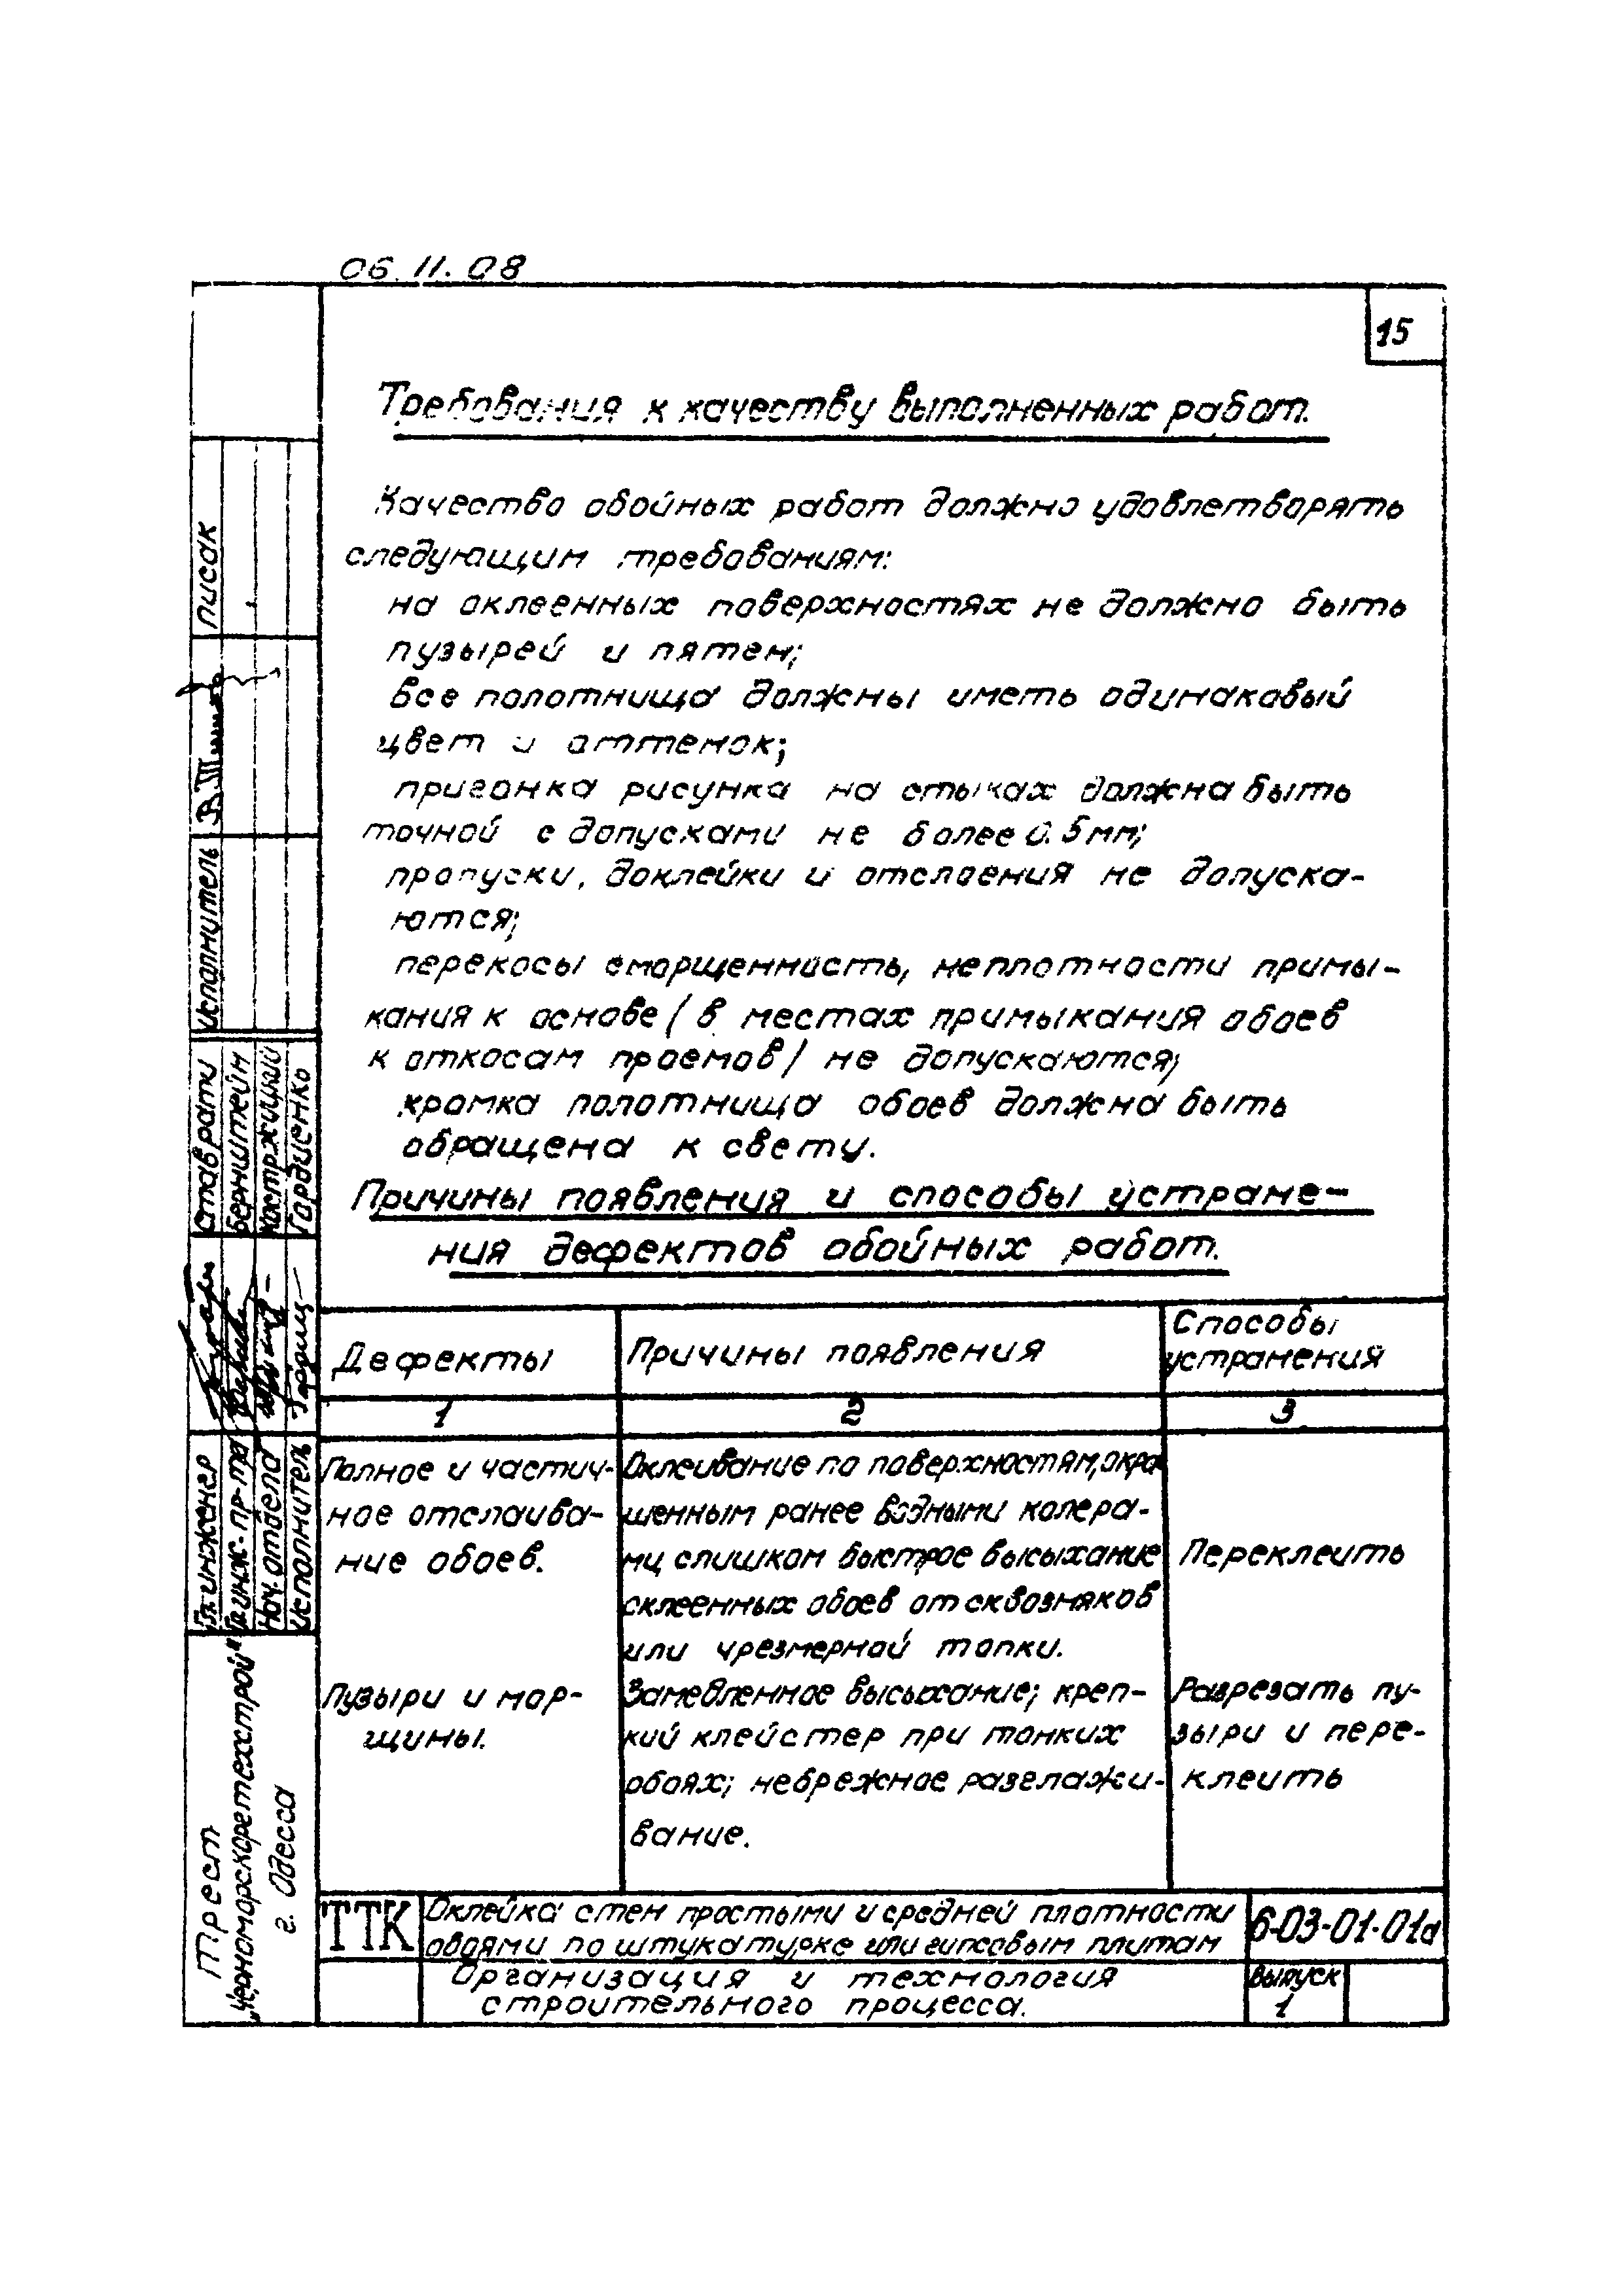 06.11.08
15
Требования к качеству выполненных работ.
Качество обойных работ должно удовлетворять
следующим требованиям:
на оклеенных поверхностях не должно быть
пузырей и пятен;
все полотнища должны иметь одинаковый
цвет и оттенок;
пригонка рисунка на стыках должна быть
точной с допусками не более 0.5мм;
пропуски, доклейки и отслоения не допуска-
ются;
перекосы сморщенность, неплотности примы-
кания к основе / в местах примыкания обоев
к откосам проемов / не допускаются;
кромка полотнища обоев должна быть
обращена к свету.
Причины появления и способы устране-
ния дефектов обойных работ.
Дефекты
Причины появления
Способы
устранения
1
2
3
Полное и частич-
ное отслаива-
ние обоев.
Оклеивание по поверхностям, окра
шенным ранее водными колера-
ми слишком быстрое высыхание
оклеенных обоев от сквозняков
или чрезмерной топки.
Переклеить
Пузыри и мор-
щины.
Замедленное высыхание; креп-
кий клейстер при тонких
обоях; небрежное разглажи-
вание.
Разрезать пу-
зыри и пере-
клеить
ТТК
Оклейка стен простыми и средней плотности
обоями по штукатурке или гипсовым плитам
6-03-01-01а
Организация и технология
строительного процесса.
выпуск
1
Писак
Исполнитель
Ставрати
Бернштейн
Костржицкий
Гордиенко
Гл. инженер
Гл. инж. пр-та
Нач. отдела
Исполнитель
Трест
„Черноморскоретехстрой"
г. Одесса